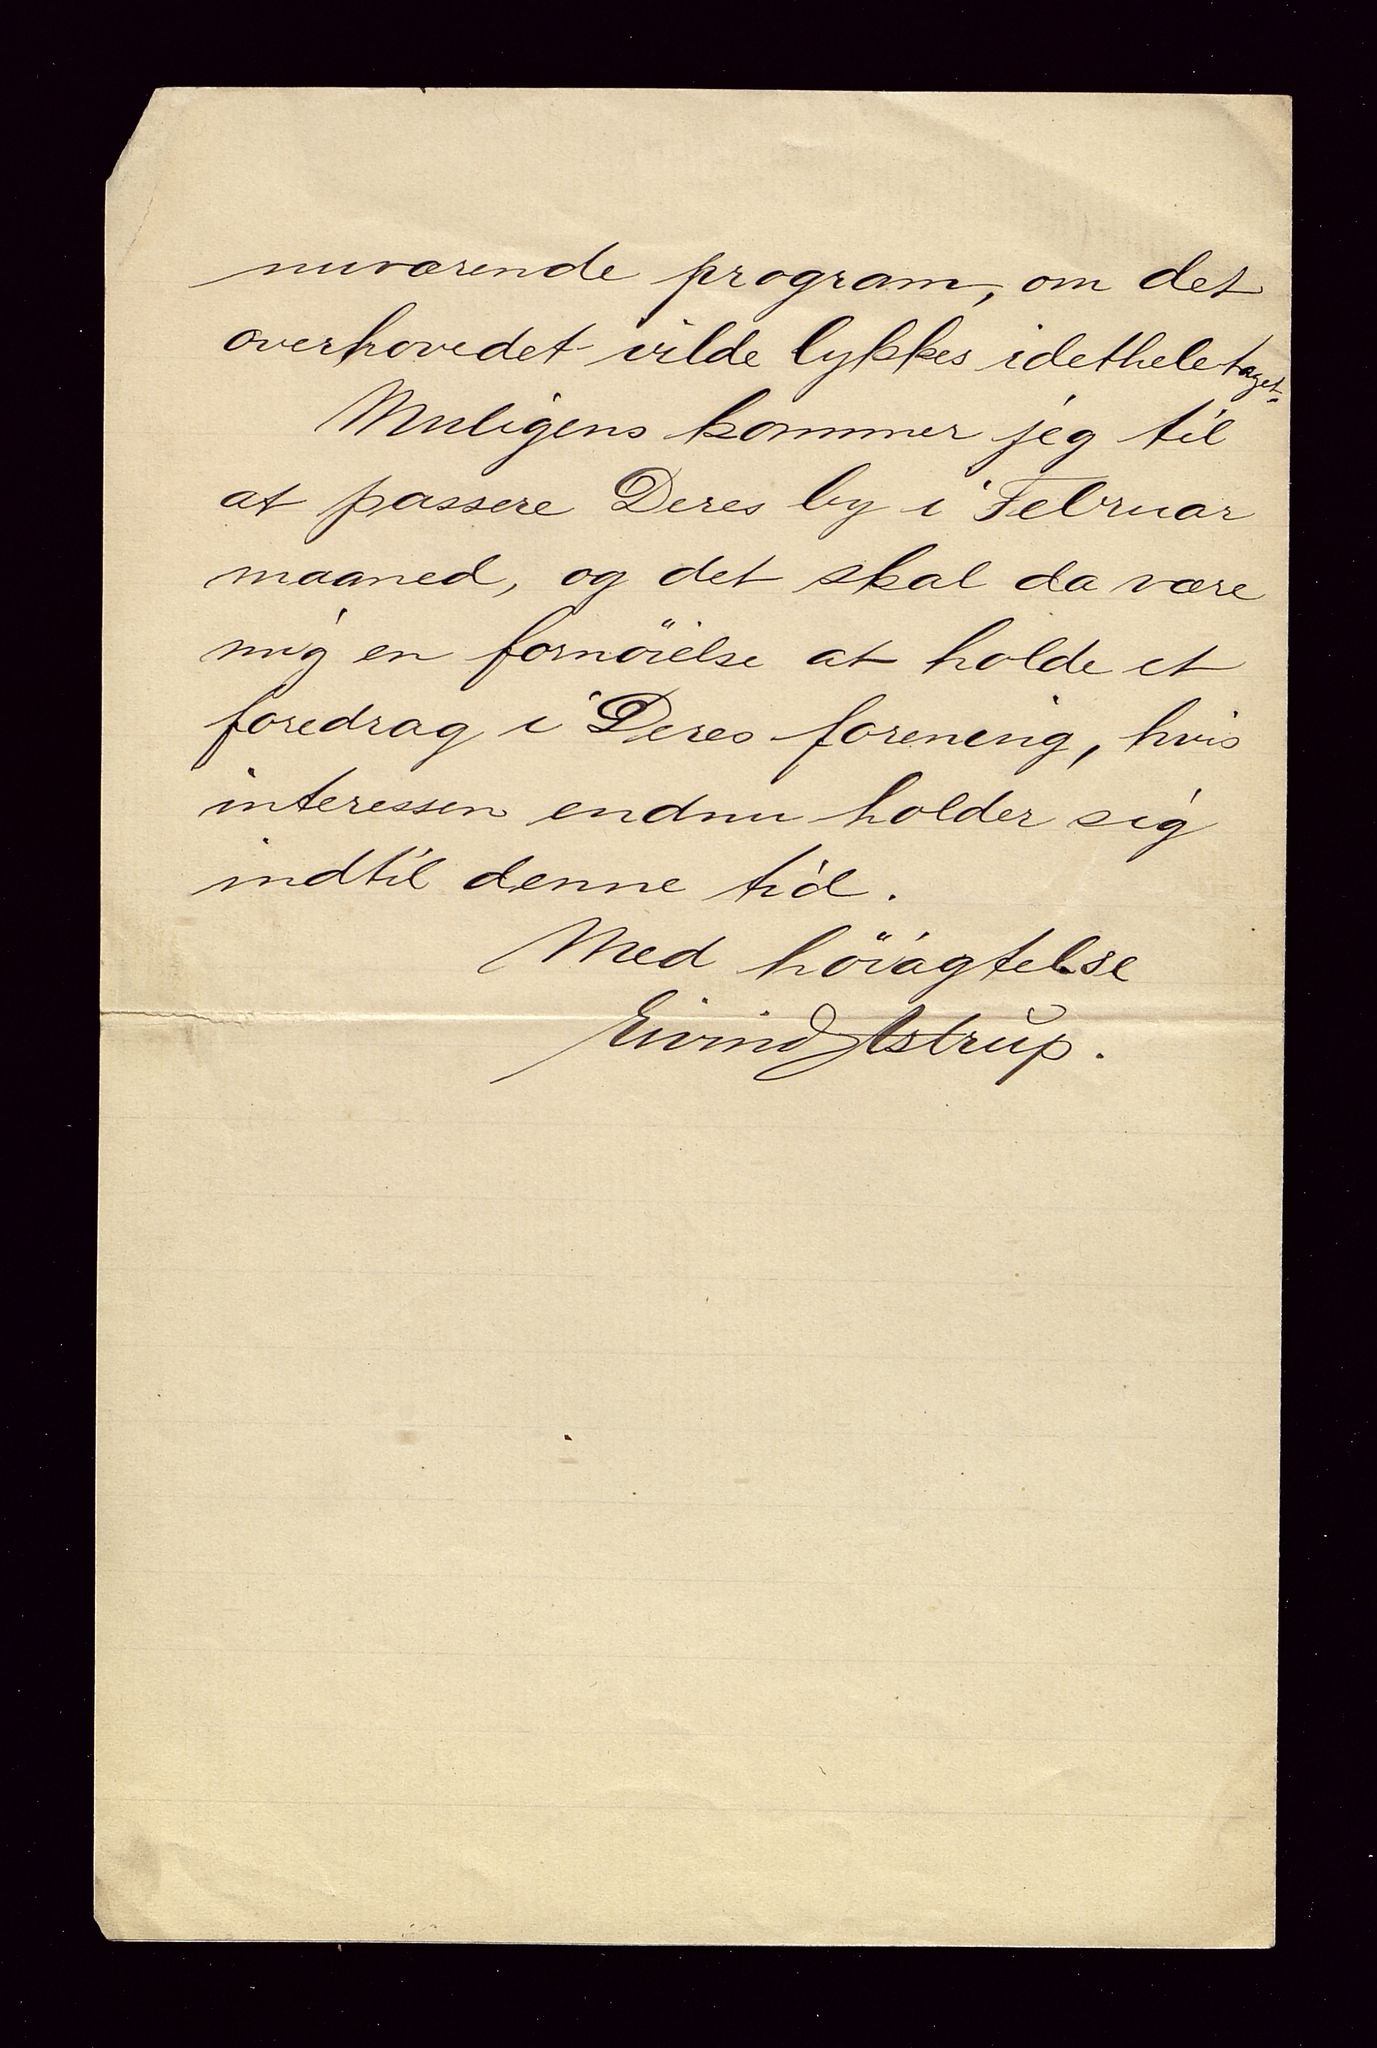 nuværende program, om det
overhovedet vilde lykkes idetheletaget.
Muligens kommer jeg til
at passere Deres by i Februar
maaned, og det skal da være
mig en fornöielse at holde et
foredrag i Deres forening, hvis
interessen endnu holder sig
indtil denne tid.
Med höiagtelse
Eivind Astrup.